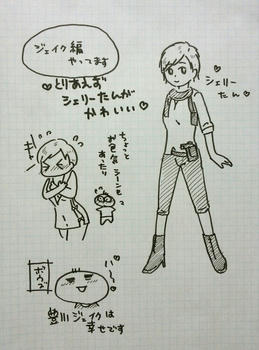 ジェイク編
やってます
とりあえず
シェリーたんが
かわいい
シェリー
たん
ちょっと
お色なシーンも
あったり
ポウッ
い〜
豊川ジェイクは
幸せです